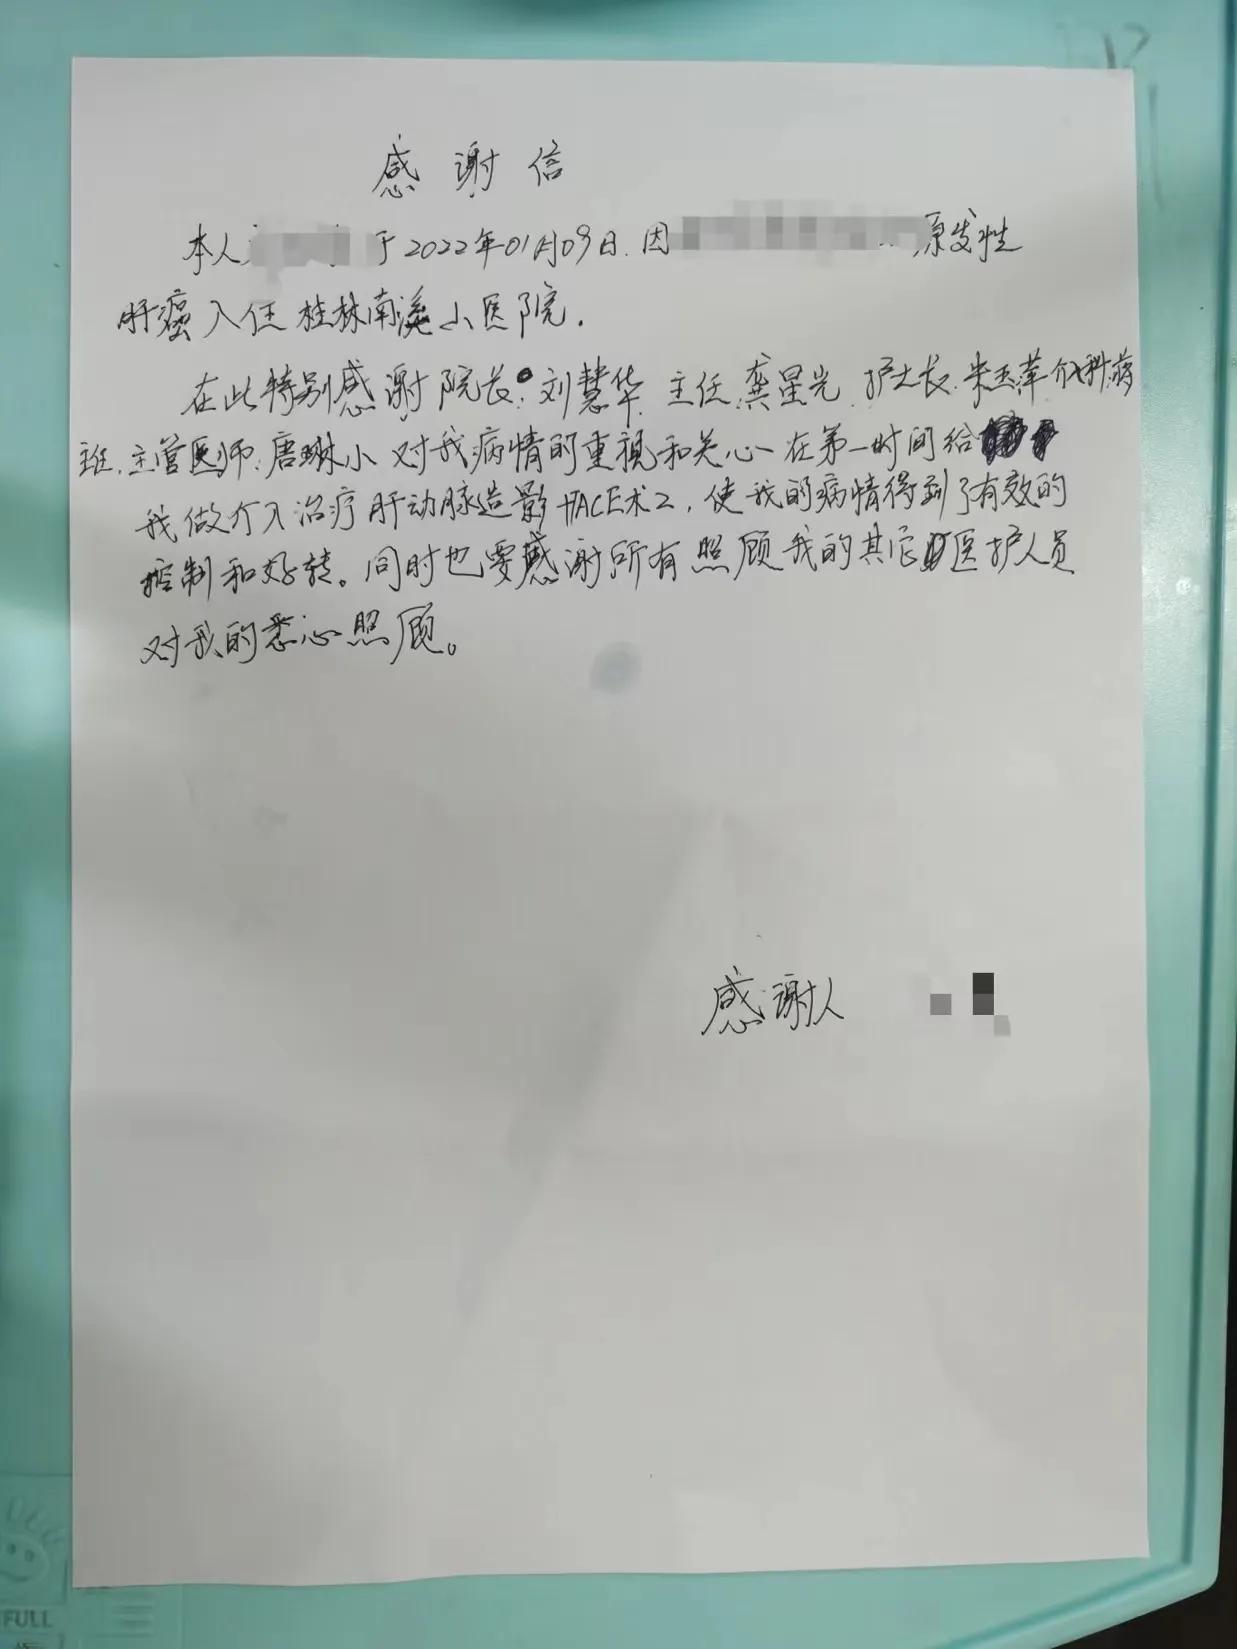 感谢信
本人 于2022年01月09日.因 原发性
肝癌入住桂林南溪山医院.
在此特别感谢院长:刘慧华 主任 龚星光 护士长 朱玉萍 介入科病
班.主管医师:唐琳小 对我病情的重视和关心 在第一时间给
我做介入治疗肝动脉造影 TACE术2,使我的病情得到了有效的
控制和好转。同时也要感谢所有照顾我的其它医护人员
对我的悉心照顾。
感谢人
FULL